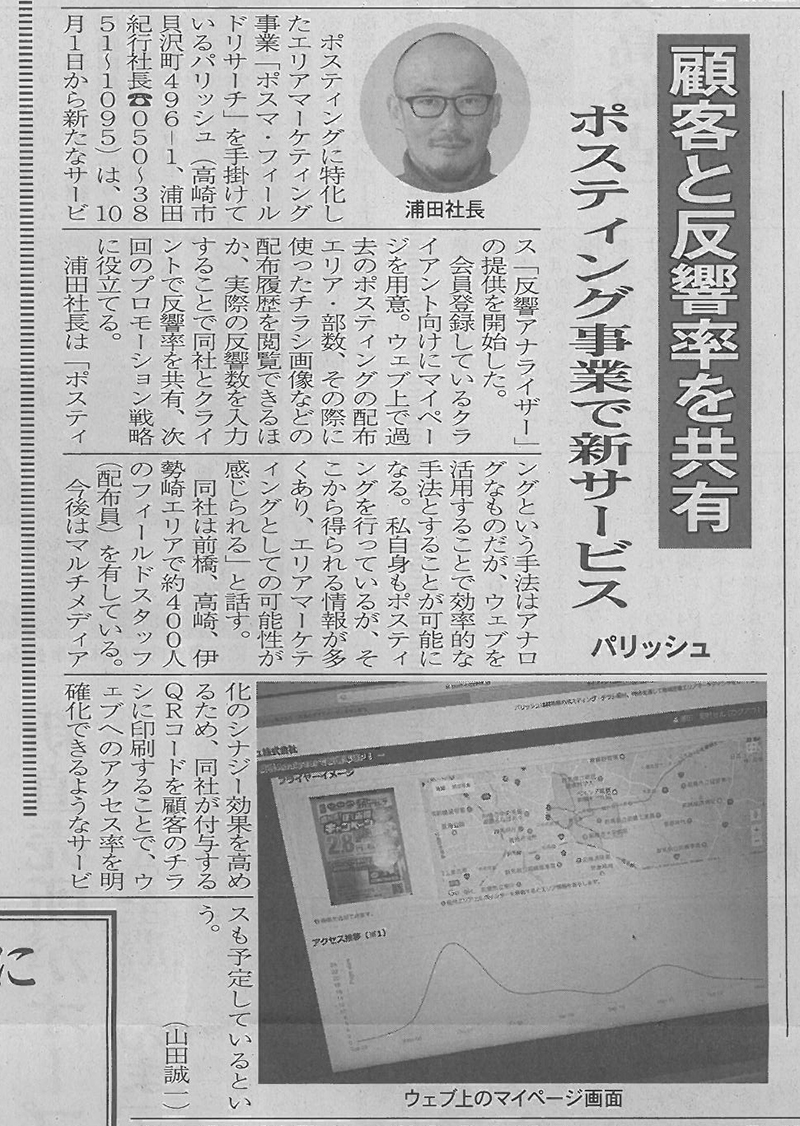 顧客と反響率を共有
ポスティング事業で新サービス
パリッシュ
浦田社長
ポスティングに特化し
たエリアマーケティング
事業「ポスマ・フィール
ドリサーチ」を手掛けて
いるパリッシュ（高崎市
貝沢町496－1、浦田
紀行社長☎050〜38
51〜1095）は、10
月1日から新たなサービ
ス「反響アナライザー」
の提供を開始した。
会員登録しているクラ
イアント向けにマイペー
ジを用意。ウェブ上で過
去のポスティングの配布
エリア・部数、その際に
使ったチラシ画像などの
配布履歴を閲覧できるほ
か、実際の反響数を入力
することで同社とクライ
ントで反響率を共有、次
回のプロモーション戦略
に役立てる。
浦田社長は「ポスティ
ングという手法はアナロ
グなものだが、ウェブを
活用することで効率的な
手法とすることが可能に
なる。私自身もポスティ
ングを行っているが、そ
こから得られる情報が多
くあり、エリアマーケテ
ィングとしての可能性が
感じられる」と話す。
同社は前橋、高崎、伊
勢崎エリアで約400人
のフィールドスタッフ
（配布員）を有している。
今後はマルチメディア
化のシナジー効果を高め
るため、同社が付与する
QRコードを顧客のチラ
シに印刷することで、ウ
ェブへのアクセス率を明
確化できるようなサービ
スも予定しているとい
う。
（山田誠一）
フライヤーイメージ
アクセス推移（※1）
ウェブ上のマイページ画面
に